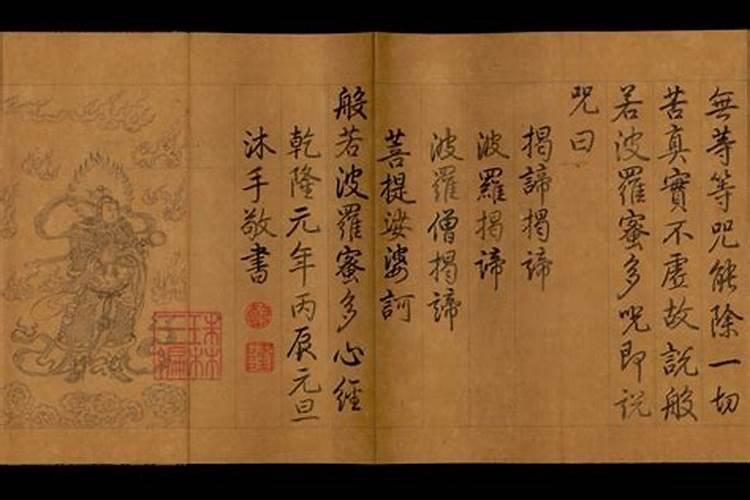 無等等咒能除一切
苦真實不虛故說般
若波羅蜜多咒即說
咒曰
揭諦揭諦
波羅揭諦
波羅僧揭諦
菩提娑婆訶
般若波羅蜜多心經
乾隆元年丙辰元旦
沐手敬書
乾
隆
珠林
三編